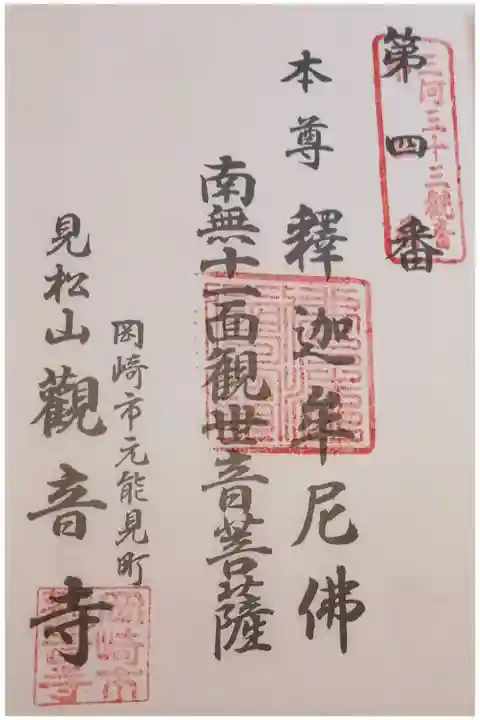 三河三十三観音
第四番
本尊 釋迦牟尼佛
南無十一面観世音菩薩
岡崎市元能見町
見松山觀音寺